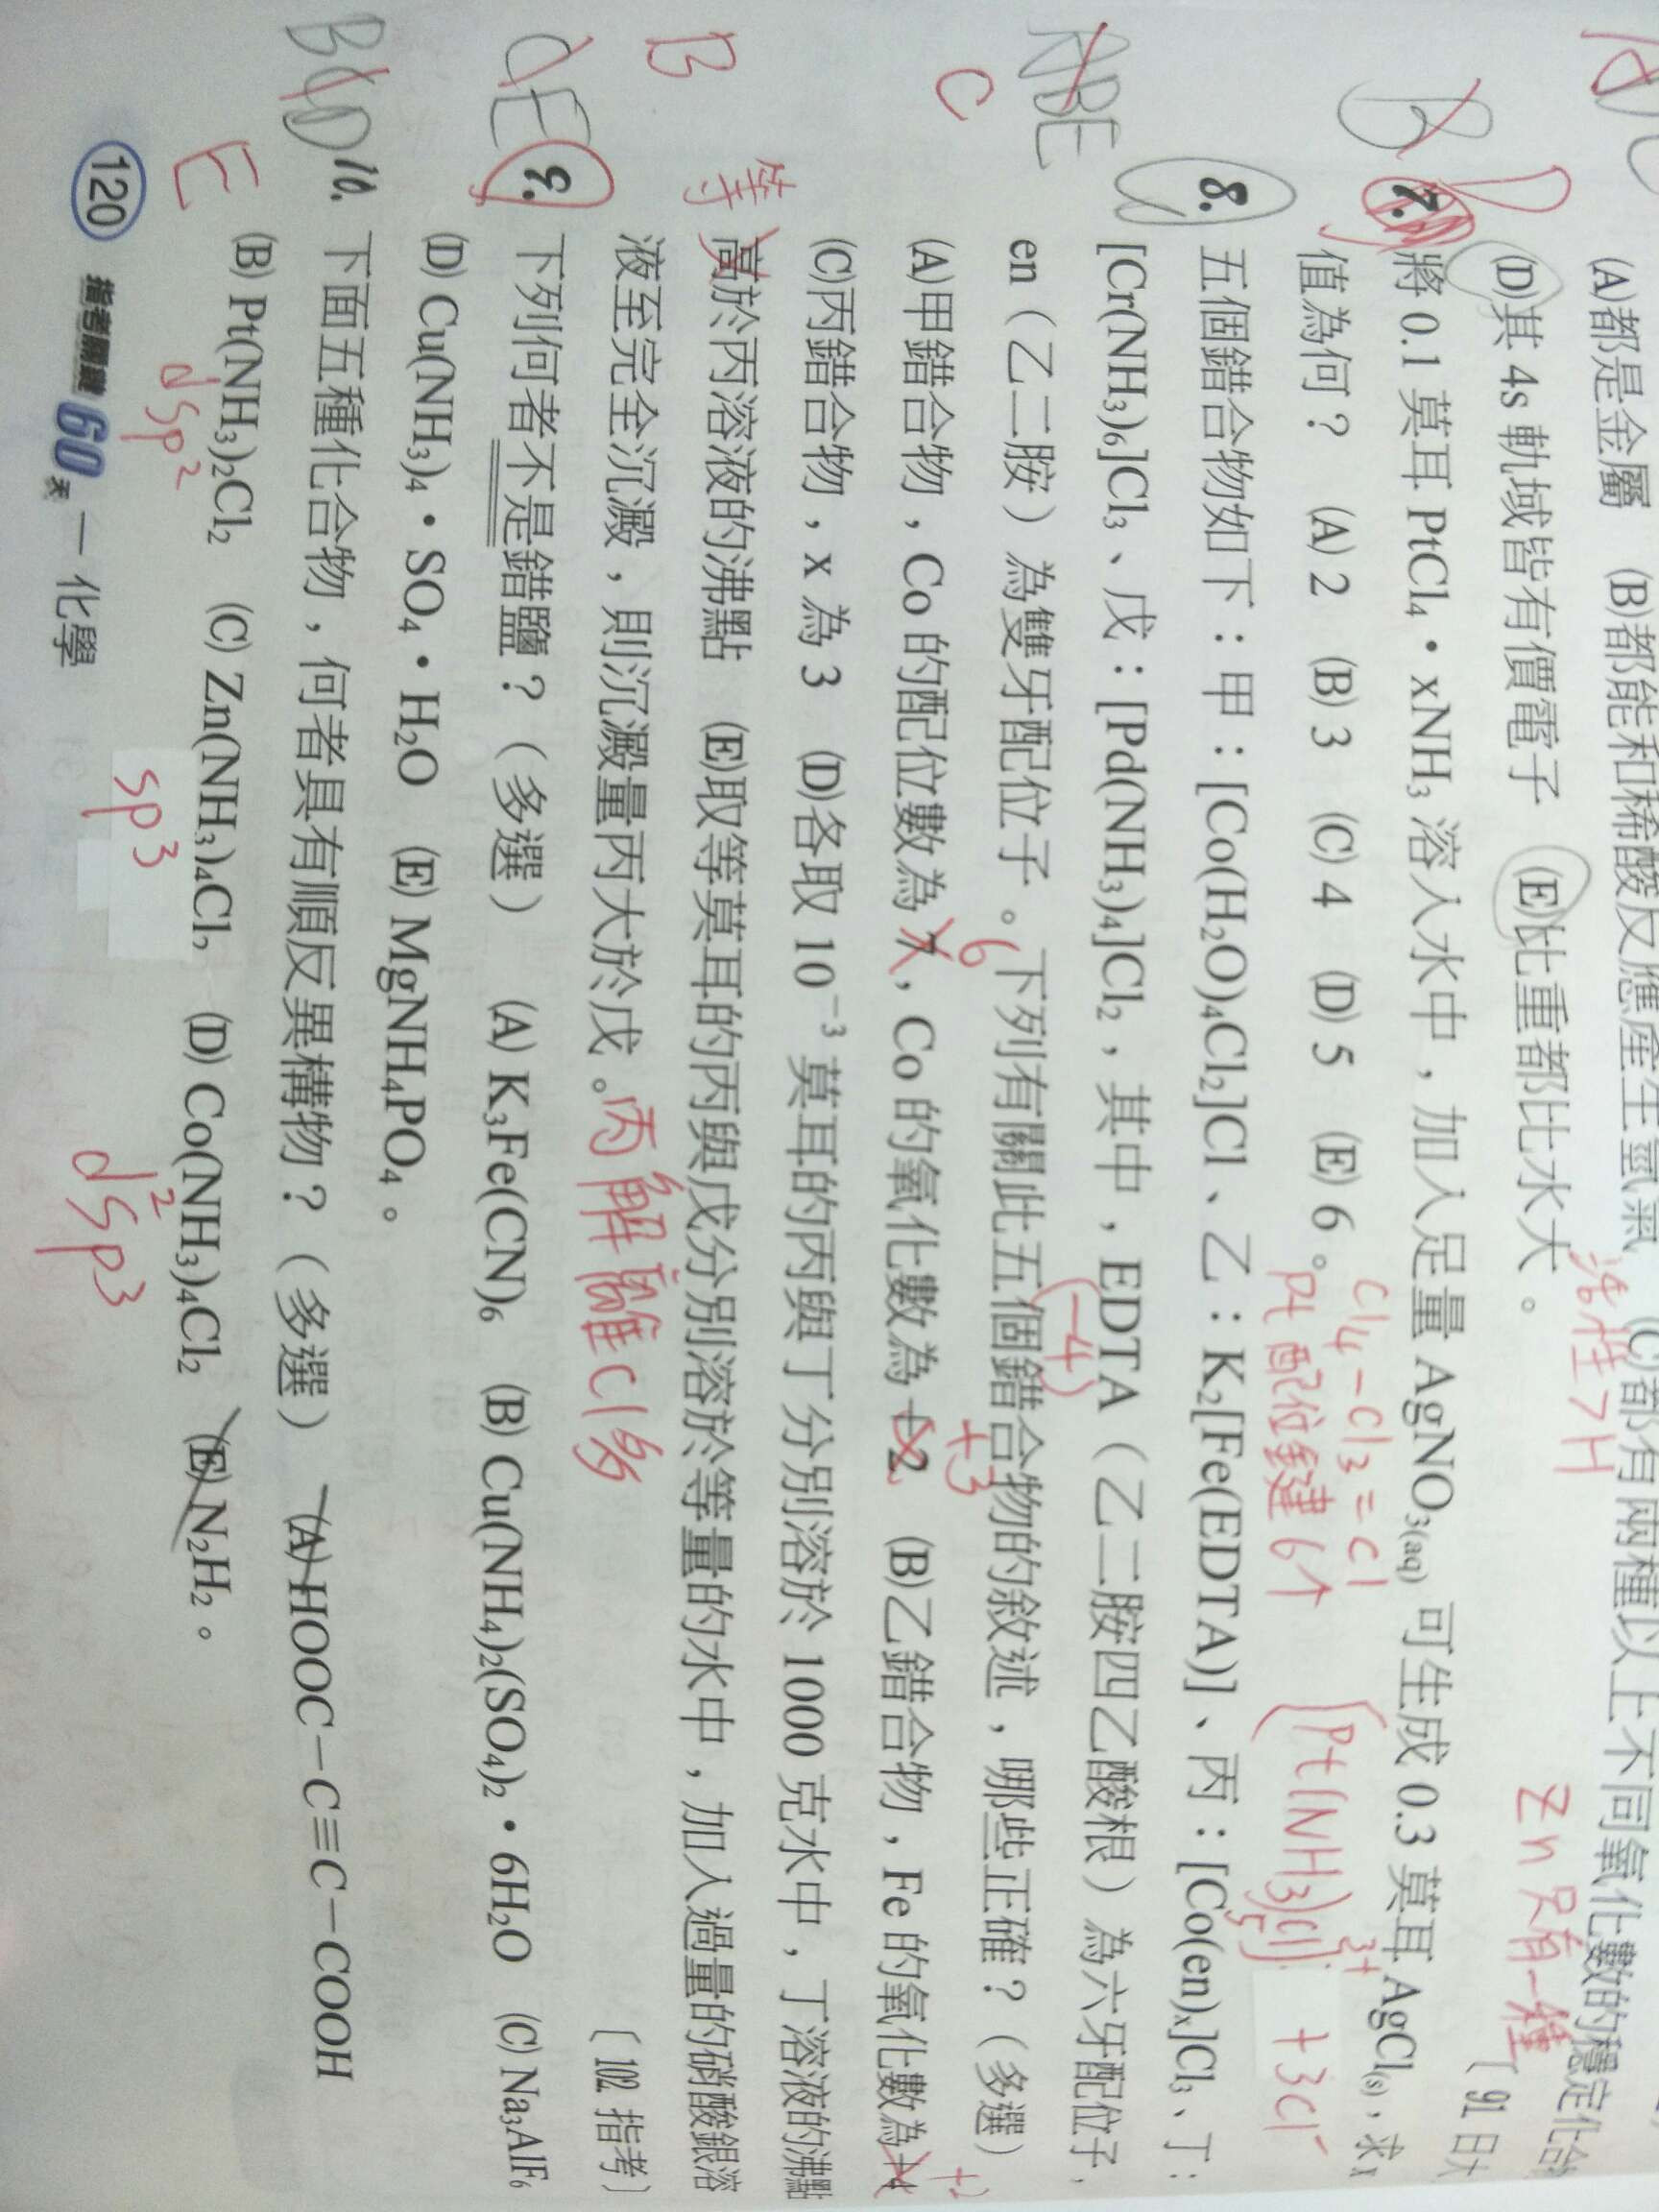 (A)都是金屬 (B)都能和稀酸反應產生氫氣 (C)都有兩種以上不同氧化數的穩定化合
活性>H Zn 只有一種
(D)其 4s 軌域皆有價電子 (E)比重都比水大。 〔91 日大
B
D
7. 將 0.1 莫耳 PtCl₄・xNH₃ 溶入水中,加入足量 AgNO₃₍aq₎ 可生成 0.3 莫耳 AgCl₍s₎,求 x
值為何? (A) 2 (B) 3 (C) 4 (D) 5 (E) 6。
Cl4-Cl3=Cl
Pt 配位鍵 6个
[Pt(NH3)5Cl]³⁺ +3Cl⁻
8. 五個錯合物如下:甲:[Co(H₂O)₄Cl₂]Cl、乙:K₂[Fe(EDTA)]、丙:[Co(en)ₓ]Cl₃、丁:
[Cr(NH₃)₆]Cl₃、戊:[Pd(NH₃)₄]Cl₂,其中,EDTA(乙二胺四乙酸根)為六牙配位子,
(-4)
ABE
C
en(乙二胺)為雙牙配位子。下列有關此五個錯合物的敘述,哪些正確?(多選)
6 +3 +2
(A)甲錯合物,Co 的配位數為 7,Co 的氧化數為+2 (B)乙錯合物,Fe 的氧化數為+4
(C)丙錯合物,x 為 3 (D)各取 10⁻³ 莫耳的丙與丁分別溶於 1000 克水中,丁溶液的沸點
等
高於丙溶液的沸點 (E)取等莫耳的丙與戊分別溶於等量的水中,加入過量的硝酸銀溶
液至完全沉澱,則沉澱量丙大於戊。丙解離Cl多 〔102 指考〕
B
9. 下列何者不是錯鹽?(多選) (A) K₃Fe(CN)₆ (B) Cu(NH₄)₂(SO₄)₂・6H₂O (C) Na₃AlF₆
(D) Cu(NH₃)₄・SO₄・H₂O (E) MgNH₄PO₄。
10. 下面五種化合物,何者具有順反異構物?(多選) (A) HOOC-C≡C-COOH
E
(B) Pt(NH₃)₂Cl₂ (C) Zn(NH₃)₄Cl₂ (D) Co(NH₃)₄Cl₂ (E) N₂H₂。
dsp² sp³ d²sp³
120 指考關鍵60天-化學